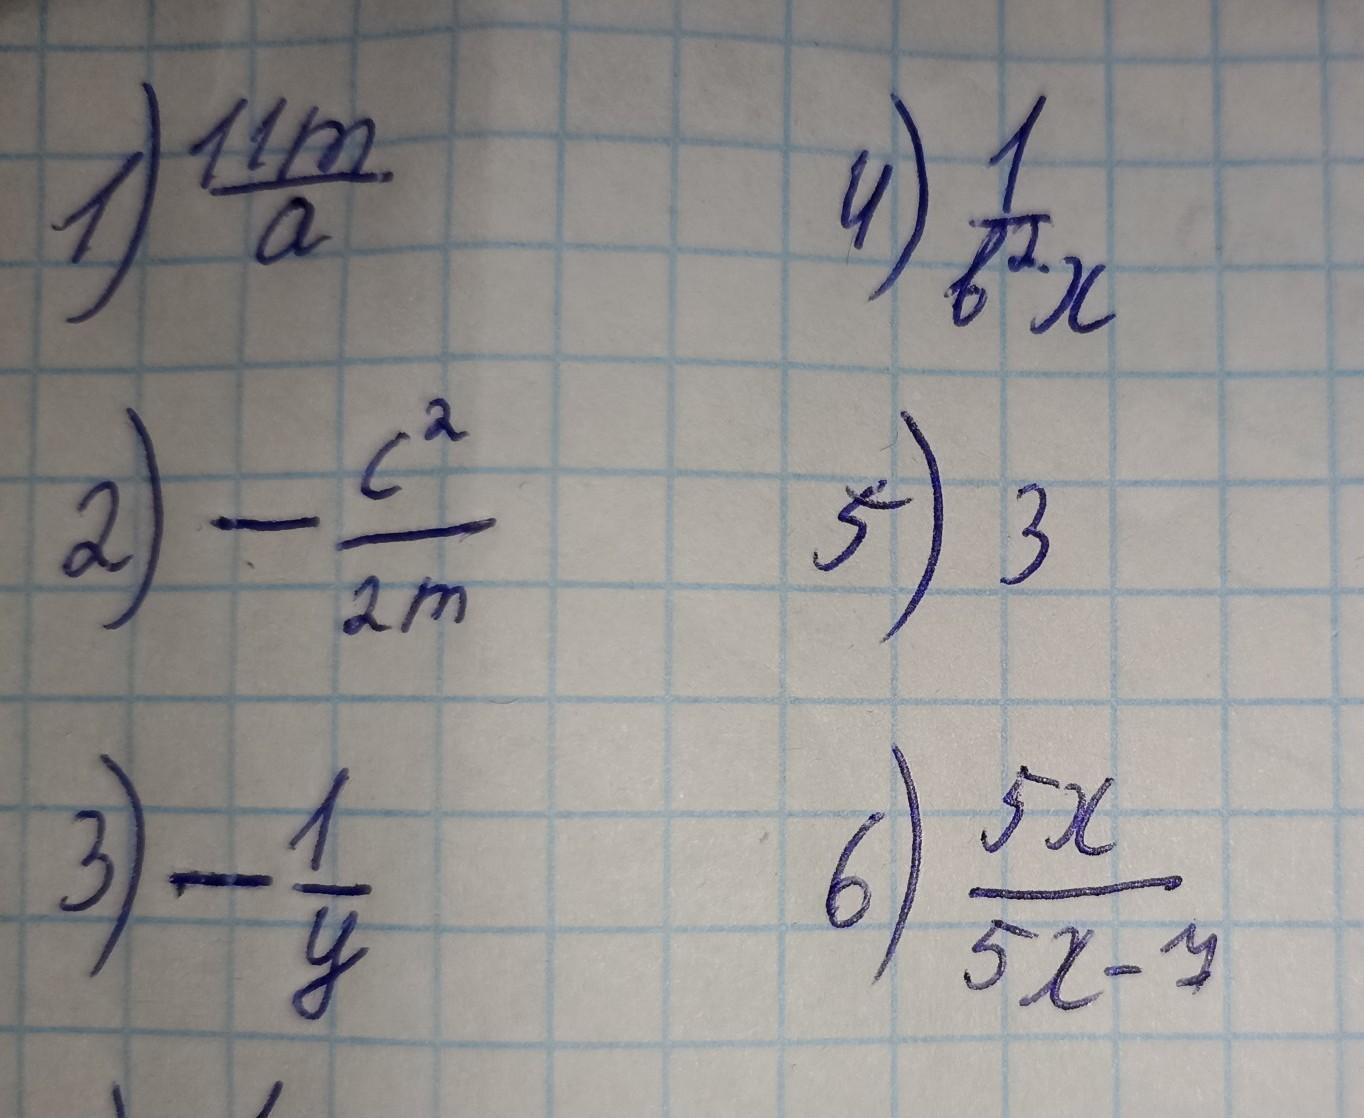 1) 11m/a
2) - c²/2m
3) - 1/y
4) 1/b²·x
5) 3
6) 5x/5x-7